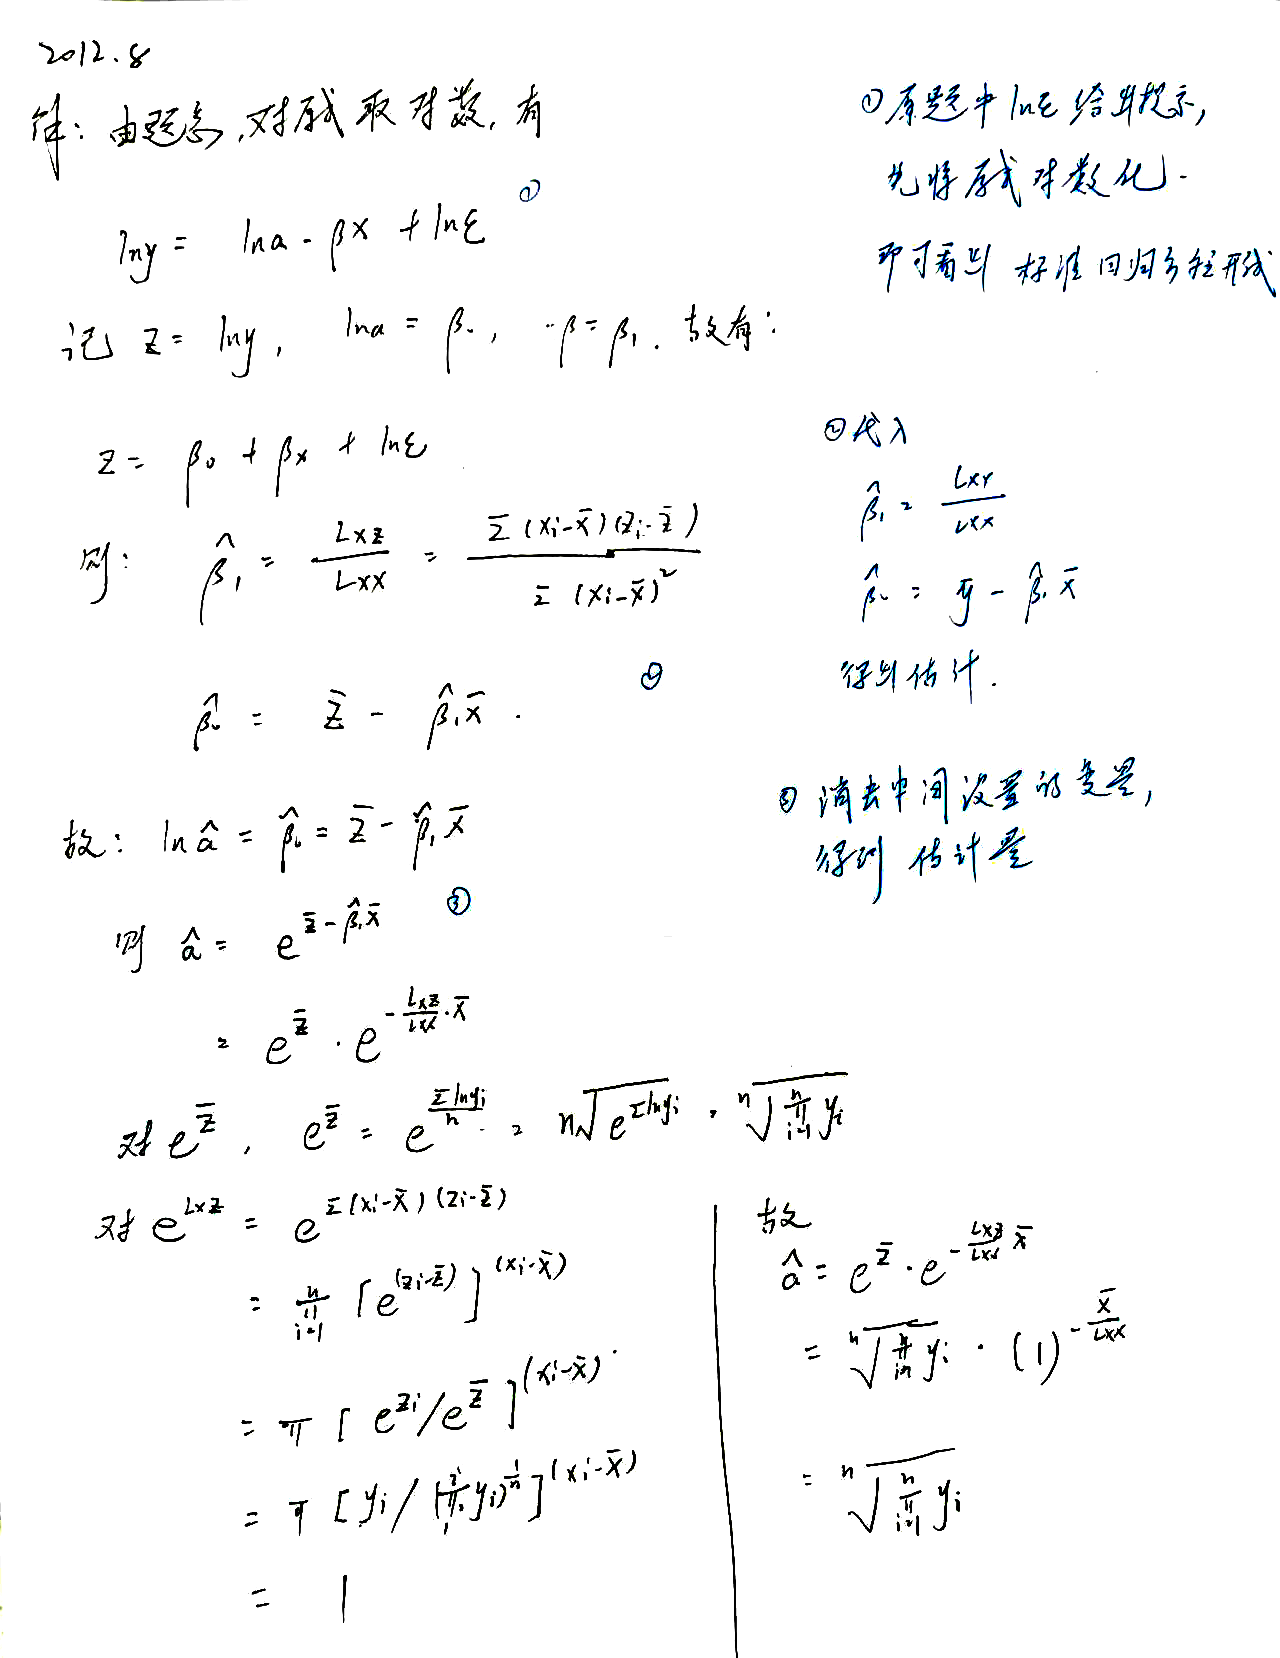 2012.8
解：由题意，对原式取对数，有
lny = lna - βx + lnε ①
记 z = lny, lna = β₀, -β = β₁. 故有：
z = β₀ + βx + lnε
则： β̂₁ = Lxz/Lxx = Σ(xi-x̄)(zi-z̄)/Σ(xi-x̄)²
β̂₀ = z̄ - β̂₁x̄ . ②
故： lnâ = β̂₀ = z̄ - β̂₁x̄
则 â = e^(z̄-β̂₁x̄) ③
= e^z̄ · e^(-Lxz/Lxx·x̄)
对 e^z̄, e^z̄ = e^(Σlnyi/n) = n√(e^(Σlnyi)) = n√(∏(i=1→n) yi)
对 e^Lxz = e^(Σ(xi-x̄)(zi-z̄))
= ∏(i=1→n) [e^(zi-z̄)]^(xi-x̄)
= π [e^zi/e^z̄]^(xi-x̄)
= π [yi/(∏yi)^(1/n)]^(xi-x̄)
= 1
故
â = e^z̄ · e^(-Lxz/Lxx x̄)
= n√(∏(i=1→n) yi) · (1)^(-x̄/Lxx)
= n√(∏(i=1→n) yi)
① 原题中lnε给出提示,
先将原式对数化.
即可看出 标准回归方程形式
② 代入
β̂₁ = Lxy/Lxx
β̂₀ = ȳ - β̂₁x̄
得出估计.
③ 消去中间设置的变量,
得到 估计量